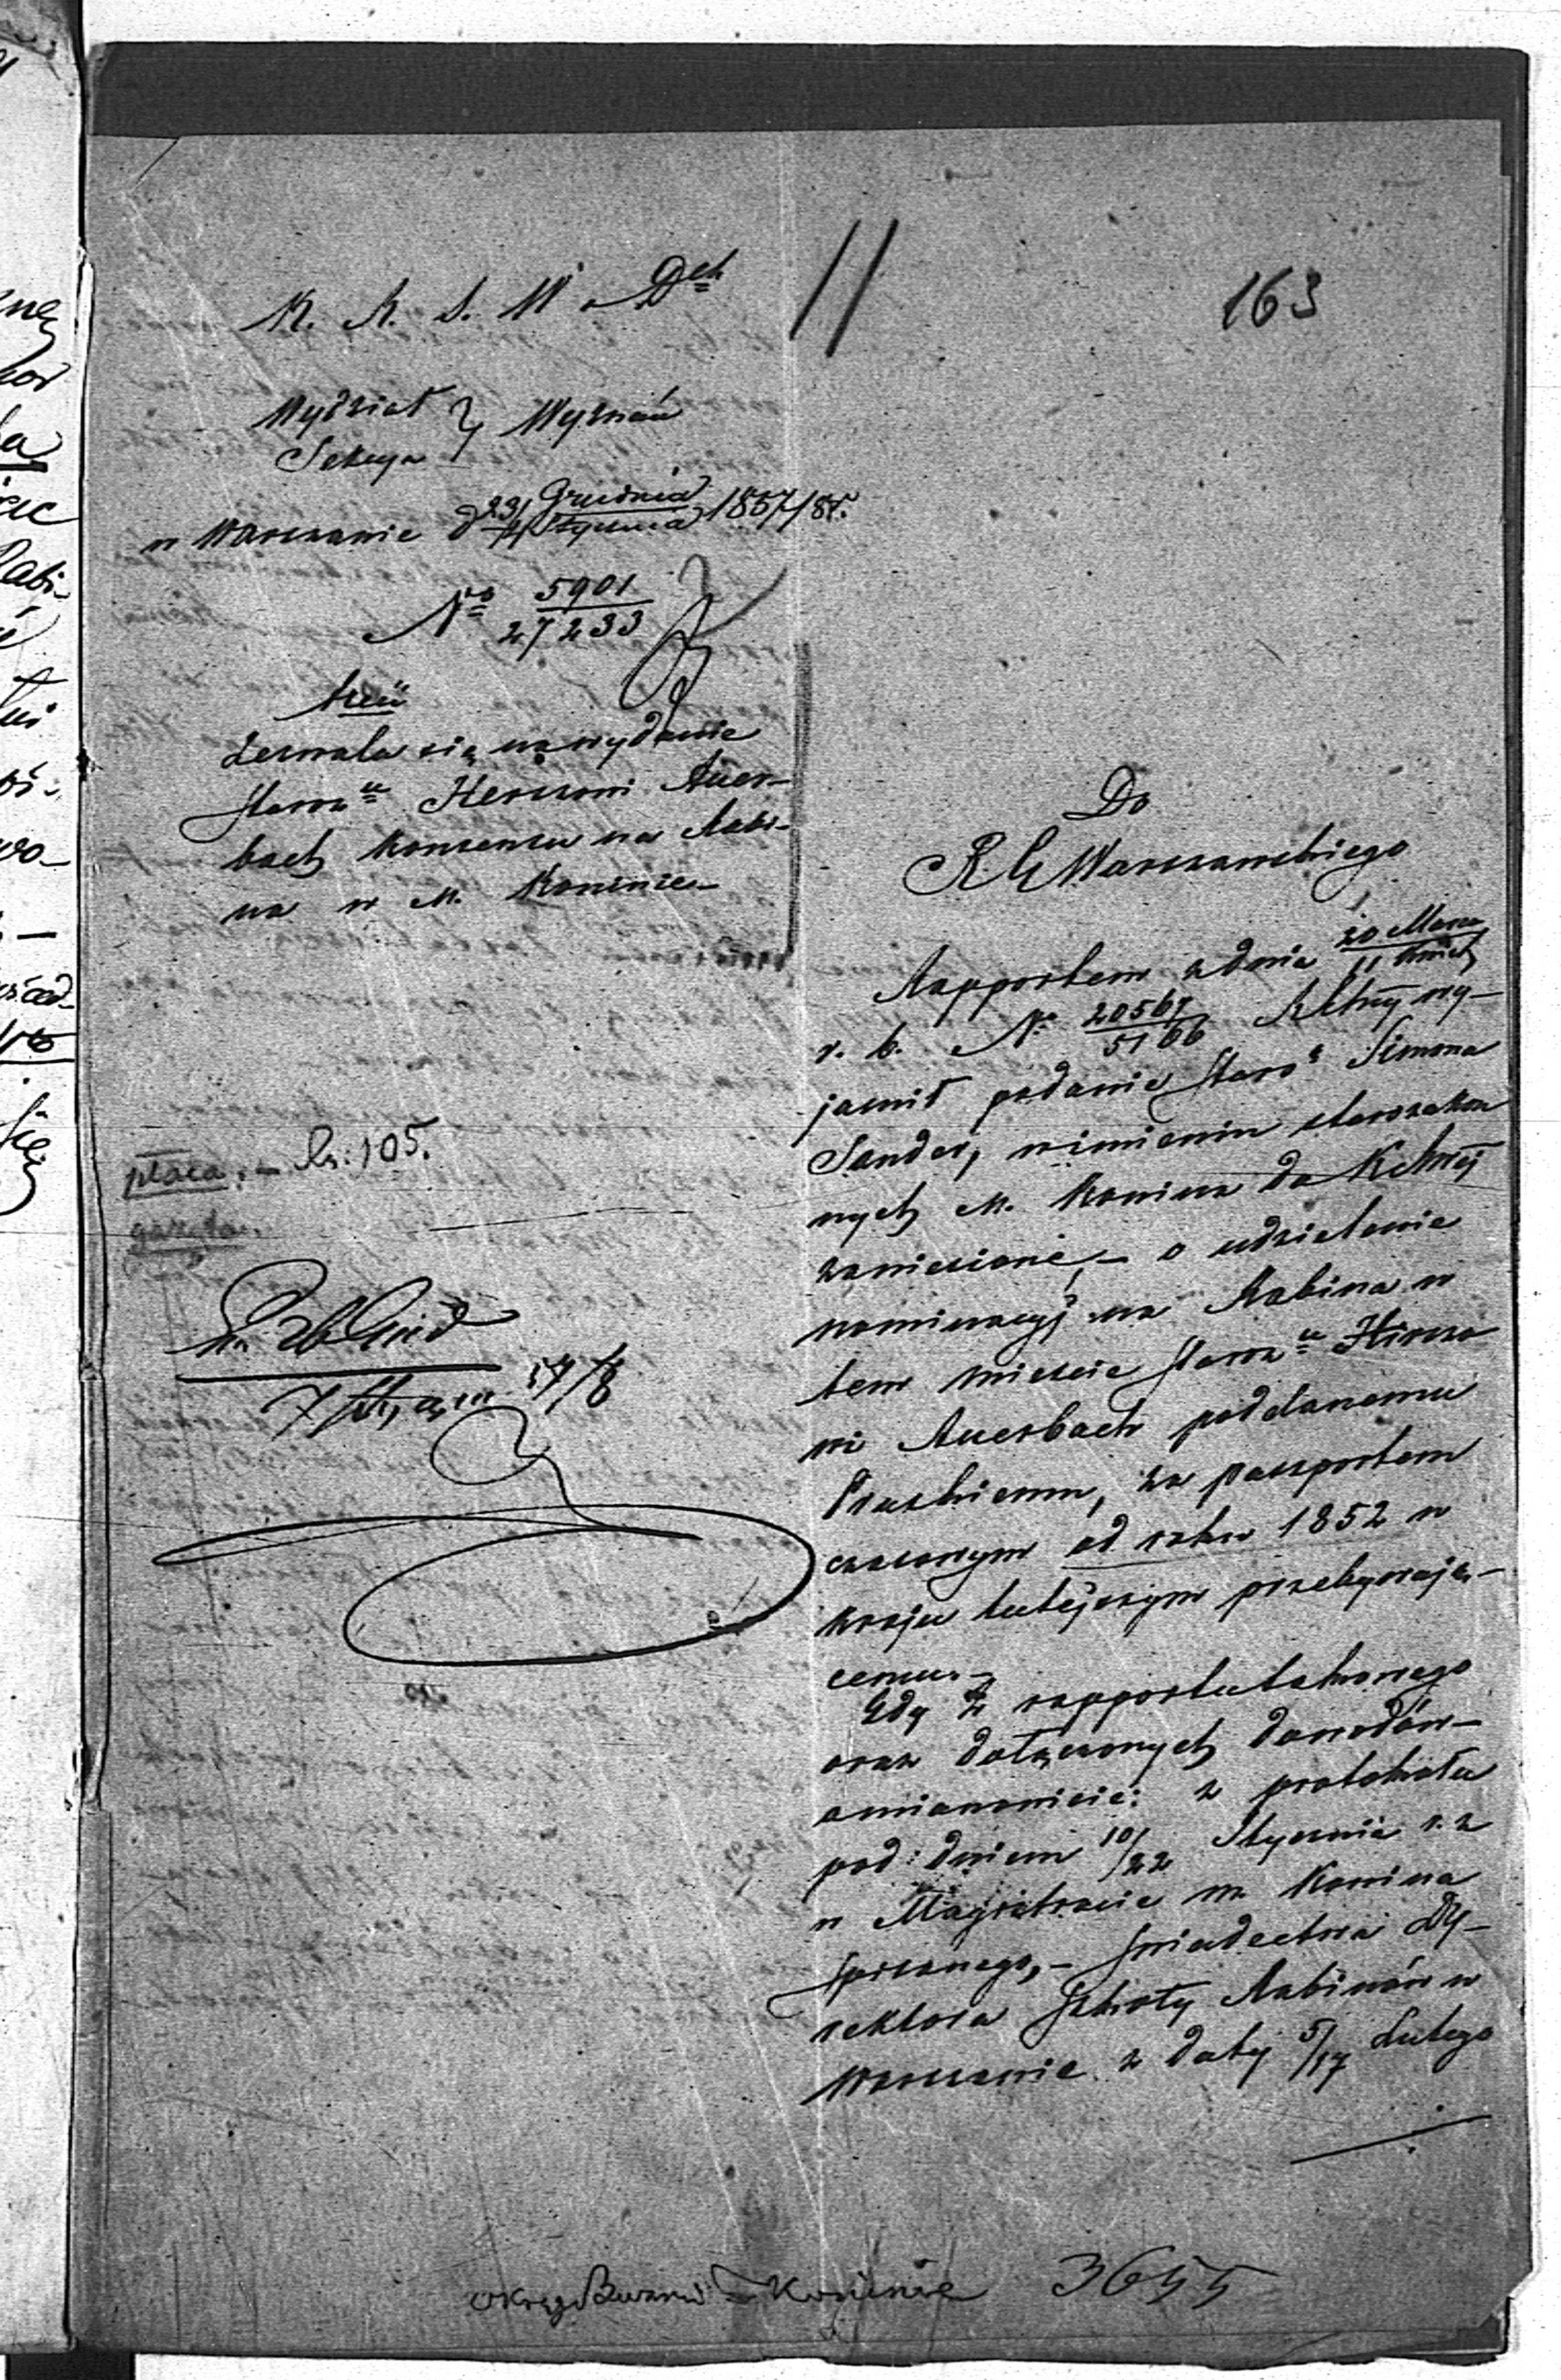 163
K. R. S. W. i D. Ch
Wydział } Wyznań
Sekcya
w Warszawie d 23/4 Grudnia/Stycznia 1857/8 r.
No 5901/27233
Zezwala się na wydanie
Staroz. Herszowi Auer-
bach konsensu na Rabi-
na w M. Koninie
płaca. – Rs: 105.
Do
R. G. Warszawskiego
Rapportem z dnia 20 Marca/11 Kwiet
r. b. No 20567/5166 K. którym wy-
jaśnił podanie Staroz. Simona
Sander, w imieniu starozakon
nych M. Konina do K.
zaniesione, – o udzielenie
nominacyj na Rabina w
tem mieście Staroz. Hirszo
wi Auerbach poddanemu
Pruskiemu, za passportem
czasowym od roku 1852 w
kraju tutejszym przebywają-
cemu. –
Gdy z rapportu takowego
oraz dołączonych dowodów –
a mianowicie: z protokółu
pod: dniem 10/22 Stycznia r. z
w Magistracie m. Konina
spisanego, – świadectwa Dy-
rektora Szkoły Rabinów w
Warszawie z daty 5/17 Lutego
Koninie 3655